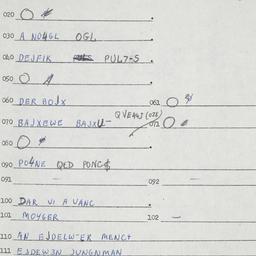 020
030 A NO4GL OGL
040 DEJFIK PUL7-S
050
060 DER BOJX 061
070 BAJXEWE BAJXU- 071
080
090 PO4NE QED PONC$
091 - 092
100 DAR VI A VANC
101 MOYGER 102 -
110 AN EJDELW-EK MENCT
111 EJDEW3N JUNGNMAN